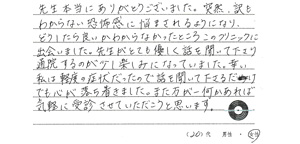 先生本当にありがとうございました。突然、訳も
わからない恐怖感に悩まされるようになり、
どうしたら良いかわからなかったところこのクリニックに
出会いました。先生がとても優しく話を聞いて下さり
通院するのが少し楽しみになっていました。幸い
私は軽度の症状だったので話を聞いて下さるだけ
でも心が落ち着きました。また万が一何かあれば
気軽に受診させていただこうと思います。
(20)代 男性・女性